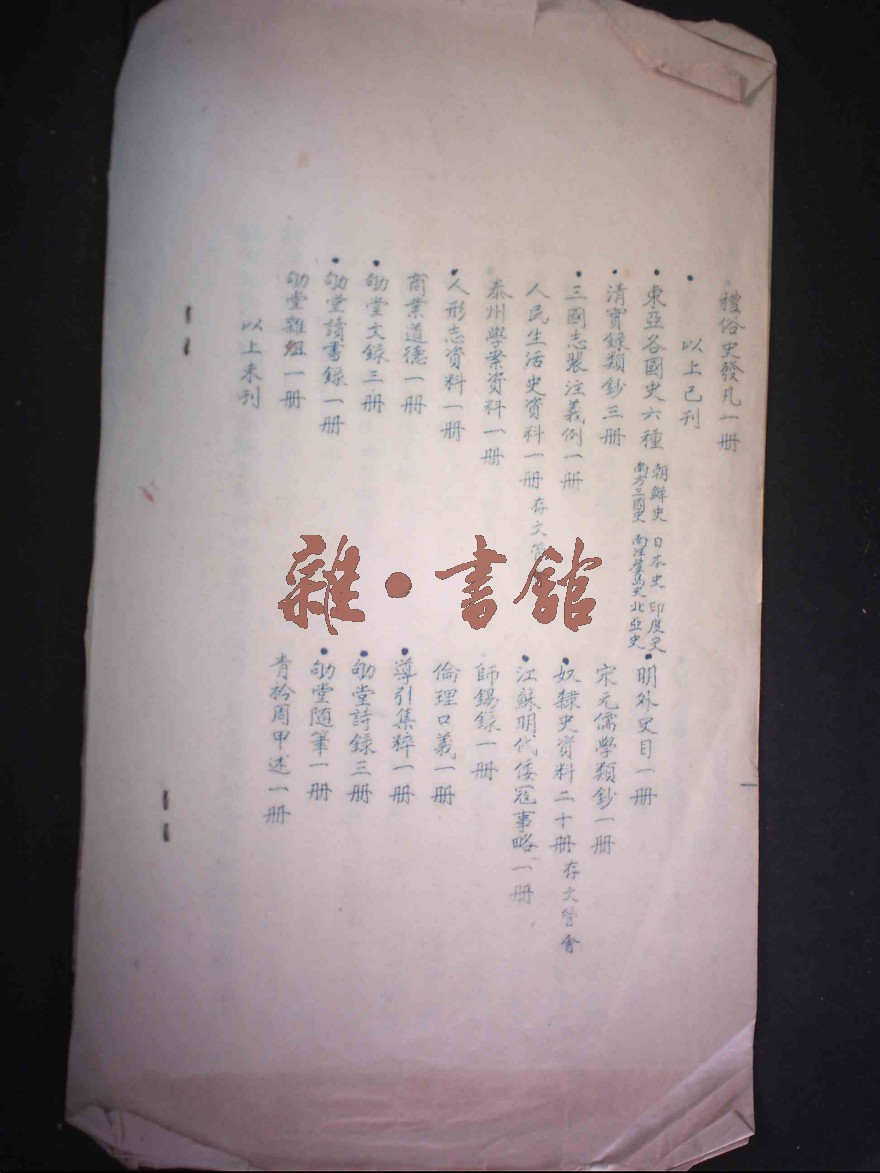 禮俗史發凡一册
以上已刊
東亞各國史六種 朝鮮史 日本史 印度史
南方三國史 南洋群島史 北亞史
明外史目一册
清實錄類鈔三册
宋元儒學類鈔一册
三國志裴注義例一册
奴隸史資料二十册 存文管會
人民生活史資料一册 存文管
江蘇明代倭冦事略一册
泰州學案資料一册
師錫錄一册
人形志資料一册
倫理口義一册
商業道德一册
導引集粹一册
劬堂文録三册
劬堂詩録三册
劬堂讀書録一册
劬堂随筆一册
劬堂雜俎一册
青衿周甲述一册
以上未刊
雜·書館